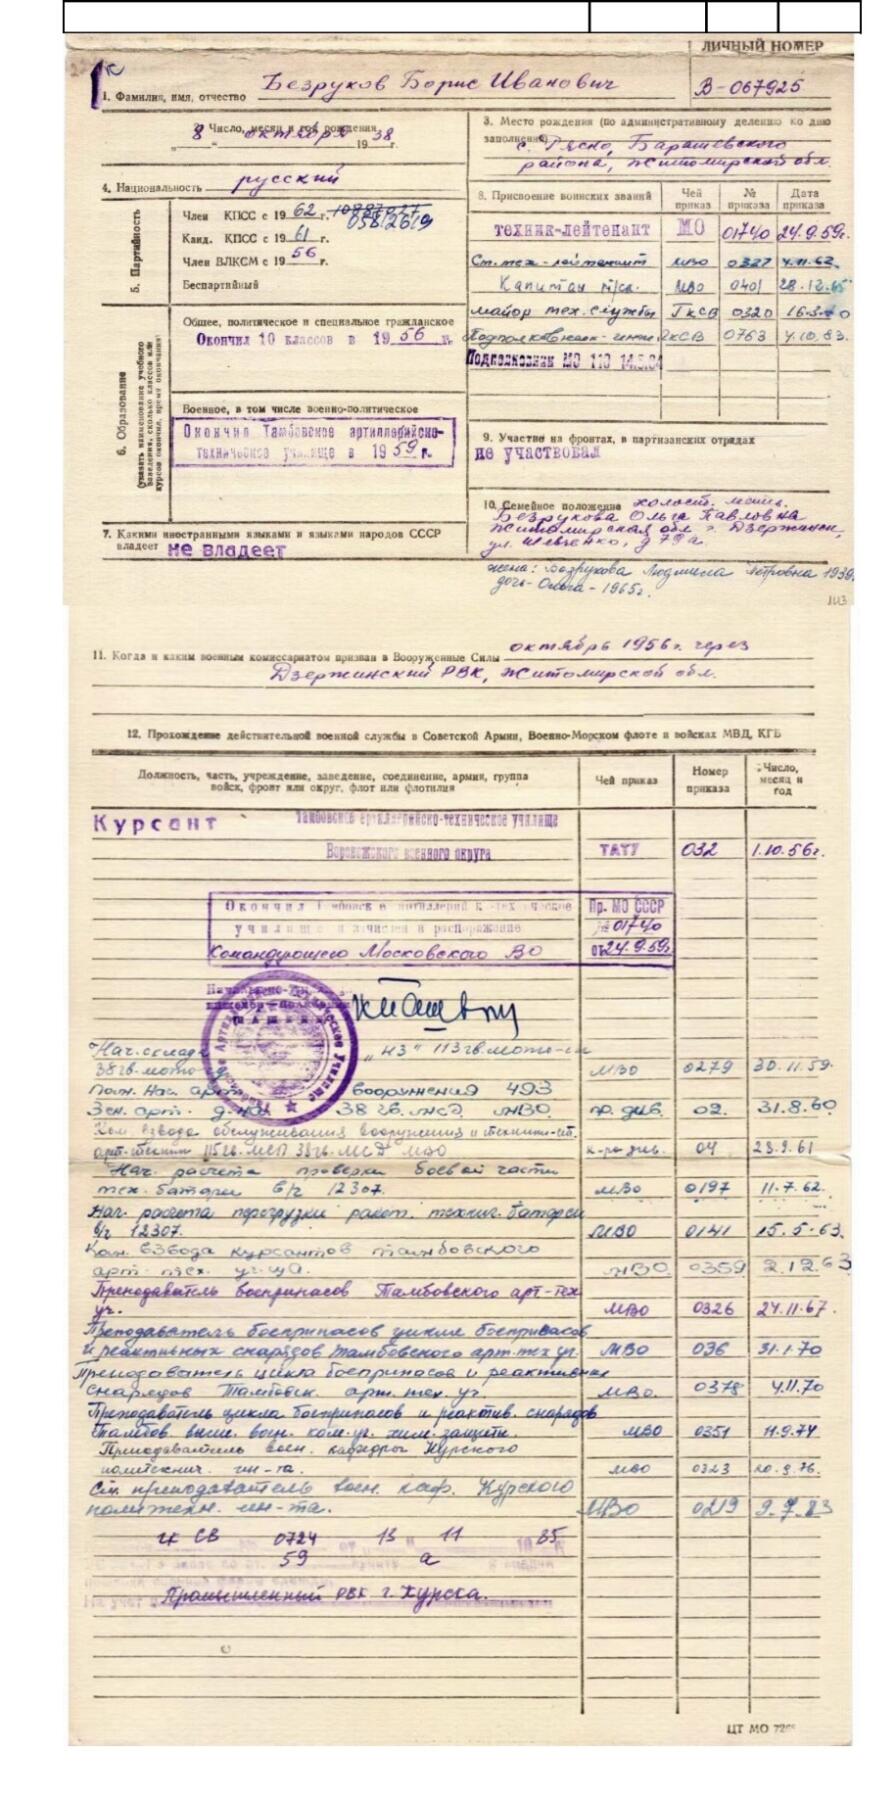 ЛИЧНЫЙ НОМЕР
1. Фамилия, имя, отчество Безруков Борис Иванович
В-067925
2. Число, месяц и год рождения
8 октября 1938 г.
3. Место рождения (по административному делению ко дню
заполнения) с. Рясно, Барашевского
района, Житомирской обл.
4. Национальность русский
5. Партийность
Член КПСС с 1962 г.
05812619
Канд. КПСС с 1961 г.
Член ВЛКСМ с 1956 г.
Беспартийный
6. Образование
(указать наименование учебного
заведения, сколько классов или
курсов окончил, время окончания)
Общее, политическое и специальное гражданское
Окончил 10 классов в 1956 г.
Военное, в том числе военно-политическое
Окончил Тамбовское артиллерийско-
техническое училище в 1959 г.
7. Какими иностранными языками и языками народов СССР
владеет не владеет
8. Присвоение воинских званий Чей приказ № приказа Дата приказа
техник-лейтенант МО 01740 24.9.59г.
Ст. тех-лейтенант МВО 0327 4.11.62.
Капитан т/сл. МВО 0401 28.12.65
майор тех. службы ГкСВ 0320
Подполковник-инж. ГкСВ 0763 4.10.83.
Подполковник МО 110 14.5.84
9. Участие на фронтах, в партизанских отрядах
не участвовал
10. Семейное положение холост.
Безрукова Ольга Павловна
Житомирская обл. г. Дзержинск,
ул. Шевченко, д 79а.
жена: Безрукова Людмила Петровна 1939
дочь-Ольга-1965г.
11. Когда и каким военным комиссариатом призван в Вооруженные Силы октябрь 1956г. через
Дзержинский РВК, Житомирской обл.
12. Прохождение действительной военной службы в Советской Армии, Военно-Морском флоте и войсках МВД, КГБ
Должность, часть, учреждение, заведение, соединение, армия, группа
войск, фронт или округ, флот или флотилия
Чей приказ
Номер приказа
Число, месяц и год
Курсант Тамбовское артиллерийско-техническое училище
Воронежского военного округа ТАТУ 032 1.10.56г.
Окончил Тамбовское артиллерийско-техническое Пр. МО СССР
училище и зачислен в распоряжение №01740
Командующего Московского ВО от 24.9.59г.
Нач. склада „НЗ" 113гв.мото-
38гв.мото МВО 0279 30.11.59.
Пом. Нач. арт. вооружения 493
Зен. арт. 38 гв. МСД МВО пр. див. 02. 31.8.60
Ком. взвода обслуживания вооружения и
арт-техники 115гв.МСП 38гв.МСД МВО к-ра див. 04 23.9.61
Нач. расчета проверки боевой части
тех. батареи в/ч 12307. МВО 0197 11.7.62.
Нач. расчета перегрузки ракет. технич. батареи
в/ч 12307. МВО 0141 15.5.63.
Ком. взвода курсантов тамбовского
арт-тех. уч-ща. МВО 0359 2.12.63
Преподаватель боеприпасов Тамбовского арт-тех
уч. МВО 0326 24.11.67.
Преподаватель боеприпасов цикла боеприпасов
и реактивных снарядов Тамбовского арт.тех уч. МВО 036 31.1.70
Преподаватель цикла боеприпасов и реактивных
снарядов Тамбовск. арт. тех. уч. МВО. 0378 4.11.70
Преподаватель цикла боеприпасов и реактив. снарядов
Тамбов. высш. воен. ком. уч. хим. защиты. МВО 0351 11.9.74
Преподаватель воен. кафедры Курского
политехнич. ин-та. МВО 0323 20.9.76.
Ст. преподаватель воен. каф. Курского
политехн. ин-та. МВО 0219 9.7.83
ГК СВ 0724 13 11 1985
59 а
Промышленный РВК г. Курска.
ЦТ МО